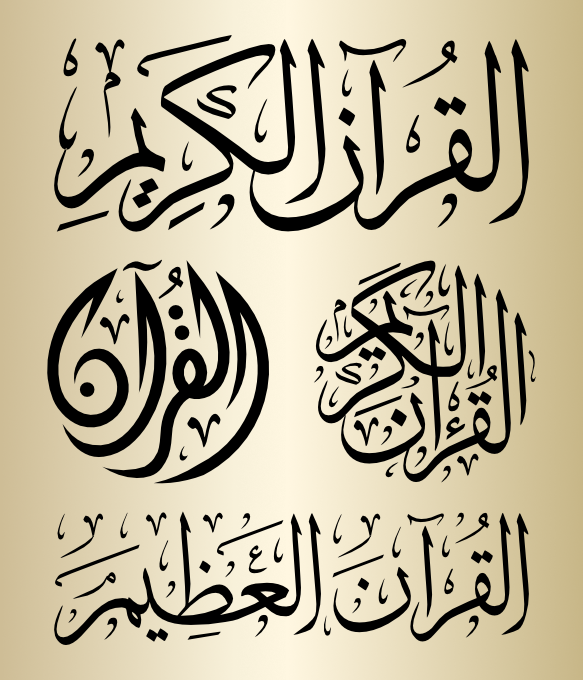 القرآن الكريم
القرآن الكريم
القرآن
القرآن العظيم